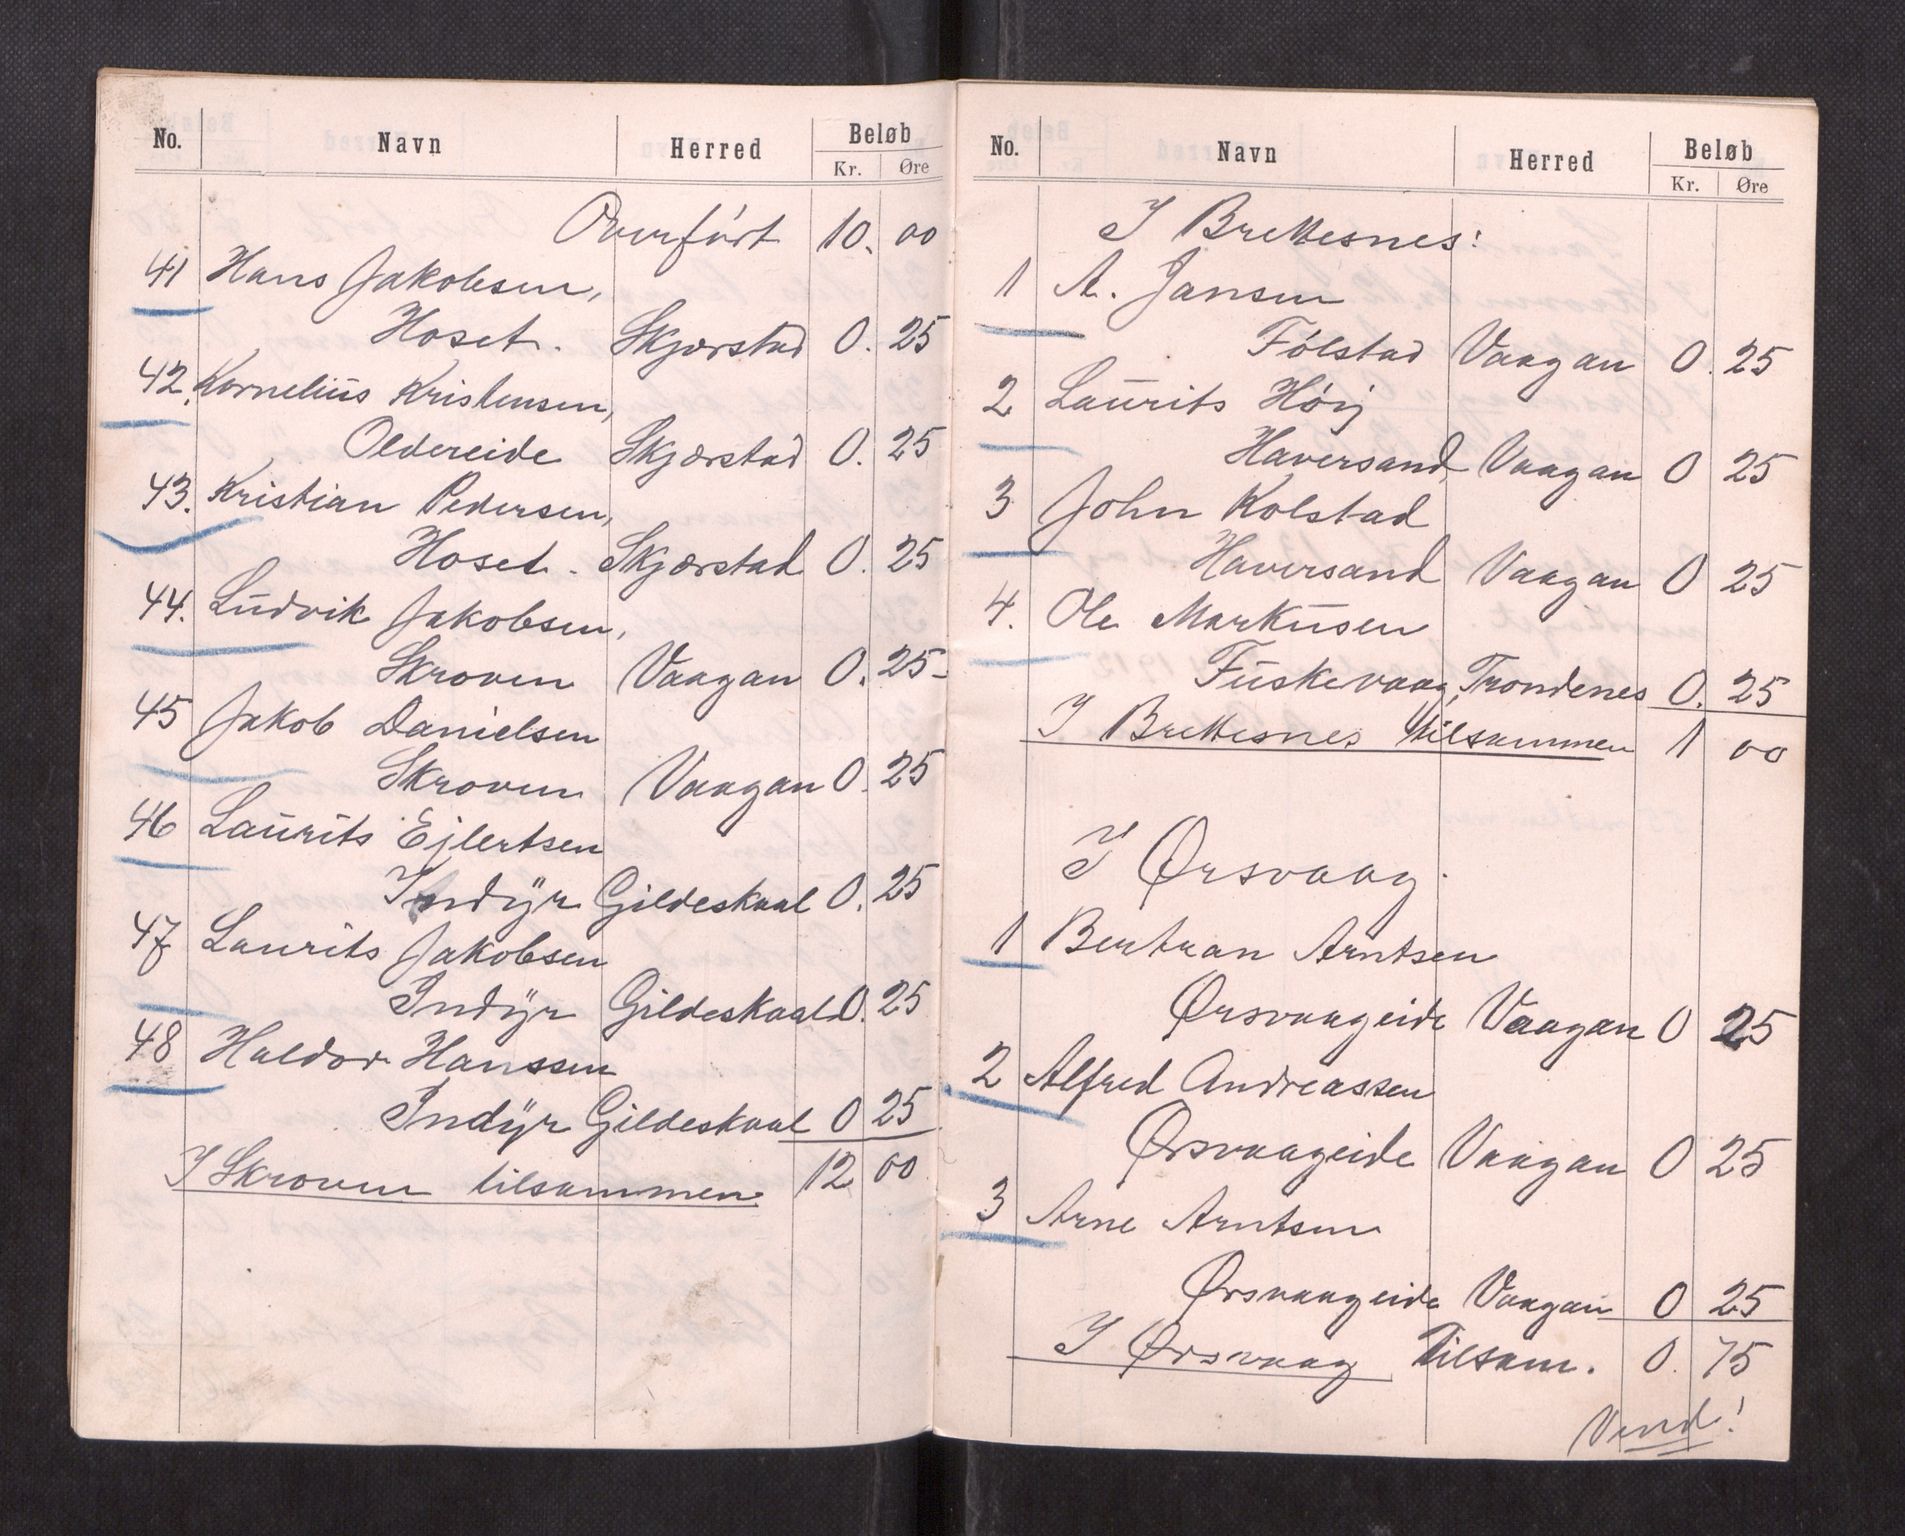 No. Navn Herred Beløb
Kr. Øre
Overført 10. 00
41 Hans Jakobsen,
Hoset. Skjærstad 0. 25
42. Kornelius Kristensen,
Oldereide Skjærstad 0. 25
43. Kristian Pedersen,
Hoset. Skjærstad 0. 25
44. Ludvik Jakobsen,
Skroven Vaagan 0. 25
45 Jakob Danielsen
Skroven Vaagan 0. 25
46 Laurits Ejlertsen
Indyr Gildeskaal 0. 25
47 Laurits Jakobsen
Indyr Gildeskaal 0. 25
48 Haldor Hanssen
Indyr Gildeskaal 0 25
I Skroven tilsammen 12 00
No. Navn Herred Beløb
Kr. Øre
I Brettesnes:
1 A. Jansen
Følstad Vaagan 0. 25
2 Laurits Høij
Haversand Vaagan 0 25
3 John Kolstad
Haversand Vaagan 0 25
4. Ole Markusen
Fuskevaag, Trondenes 0. 25
I Brettesnes tilsammen 1 00
I Ørsvaag.
1 Bertran Arntsen
Ørsvaageide Vaagan 0 25
2 Alfred Andreassen
Ørsvaageide Vaagan 0 25
3 Arne Arntsen
Ørsvaageide Vaagan 0 25
I Ørsvaag Tilsam. 0. 75
Vend!